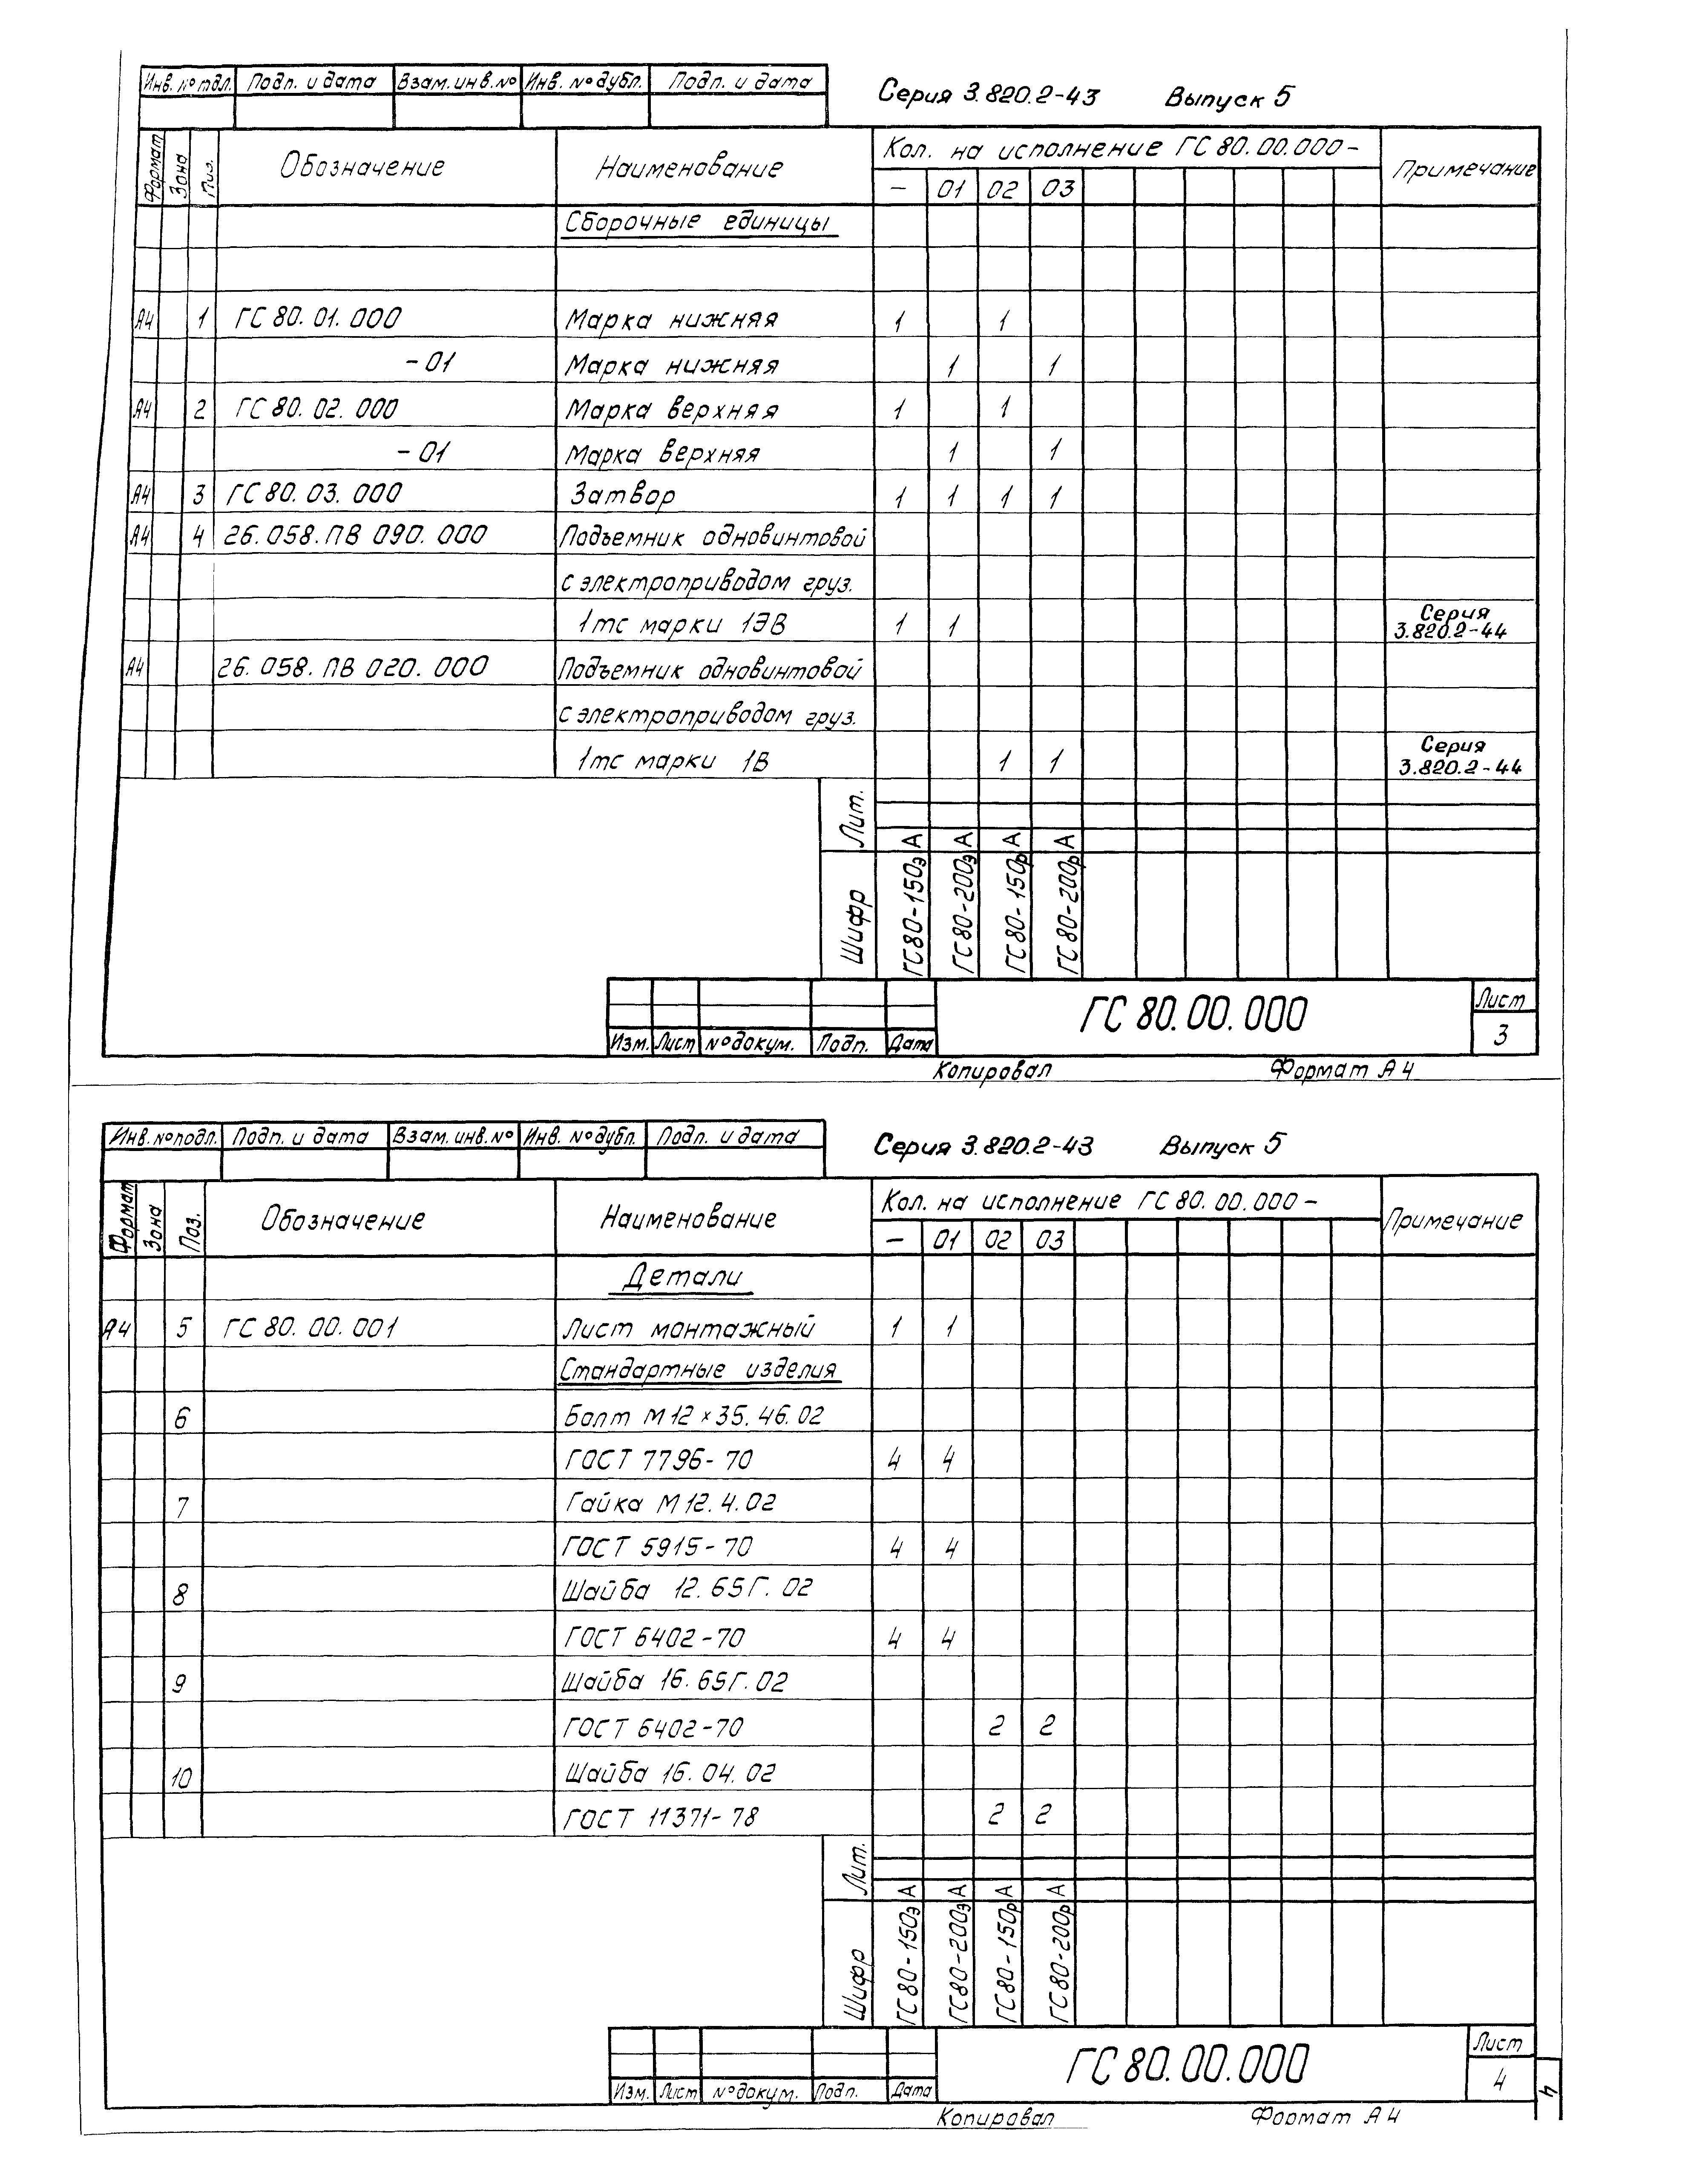 Инв. № подл. Подп. и дата Взам. инв. № Инв. № дубл. Подп. и дата Серия 3.820.2-43 Выпуск 5
Формат Зона Поз. Обозначение Наименование Кол. на исполнение ГС 80.00.000- Примечание
- 01 02 03
Сборочные единицы
А4 1 ГС 80.01.000 Марка нижняя 1 1
-01 Марка нижняя 1 1
А4 2 ГС 80.02.000 Марка верхняя 1 1
-01 Марка верхняя 1 1
А4 3 ГС 80.03.000 Затвор 1 1 1 1
А4 4 26.058.ПВ 090.000 Подъемник одновинтовой
с электроприводом груз.
1тс марки 1ЭВ 1 1 Серия 3.820.2-44
А4 26.058.ПВ 020.000 Подъемник одновинтовой
с электроприводом груз.
1тс марки 1В 1 1 Серия 3.820.2-44
Лит. А А А А
Шифр ГС80-150э ГС80-200э ГС80-150р ГС80-200р
ГС 80.00.000 Лист
3
Изм. Лист № докум. Подп. Дата
Копировал Формат А4
Инв. № подл. Подп. и дата Взам. инв. № Инв. № дубл. Подп. и дата Серия 3.820.2-43 Выпуск 5
Формат Зона Поз. Обозначение Наименование Кол. на исполнение ГС 80.00.000- Примечание
- 01 02 03
Детали
А4 5 ГС 80.00.001 Лист монтажный 1 1
Стандартные изделия
6 Болт М12×35.46.02
ГОСТ 7796-70 4 4
7 Гайка М12.4.02
ГОСТ 5915-70 4 4
8 Шайба 12.65Г.02
ГОСТ 6402-70 4 4
9 Шайба 16.65Г.02
ГОСТ 6402-70 2 2
10 Шайба 16.04.02
ГОСТ 11371-78 2 2
Лит. А А А А
Шифр ГС80-150э ГС80-200э ГС80-150р ГС80-200р
ГС 80.00.000 Лист
4
Изм. Лист № докум. Подп. Дата
4
Копировал Формат А4